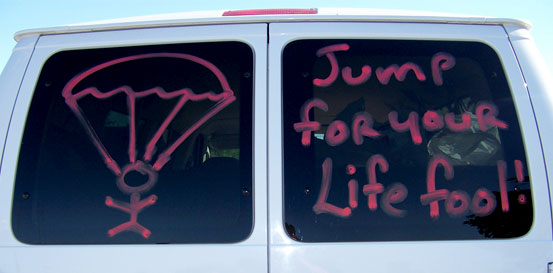 Jump
for your
Life fool!